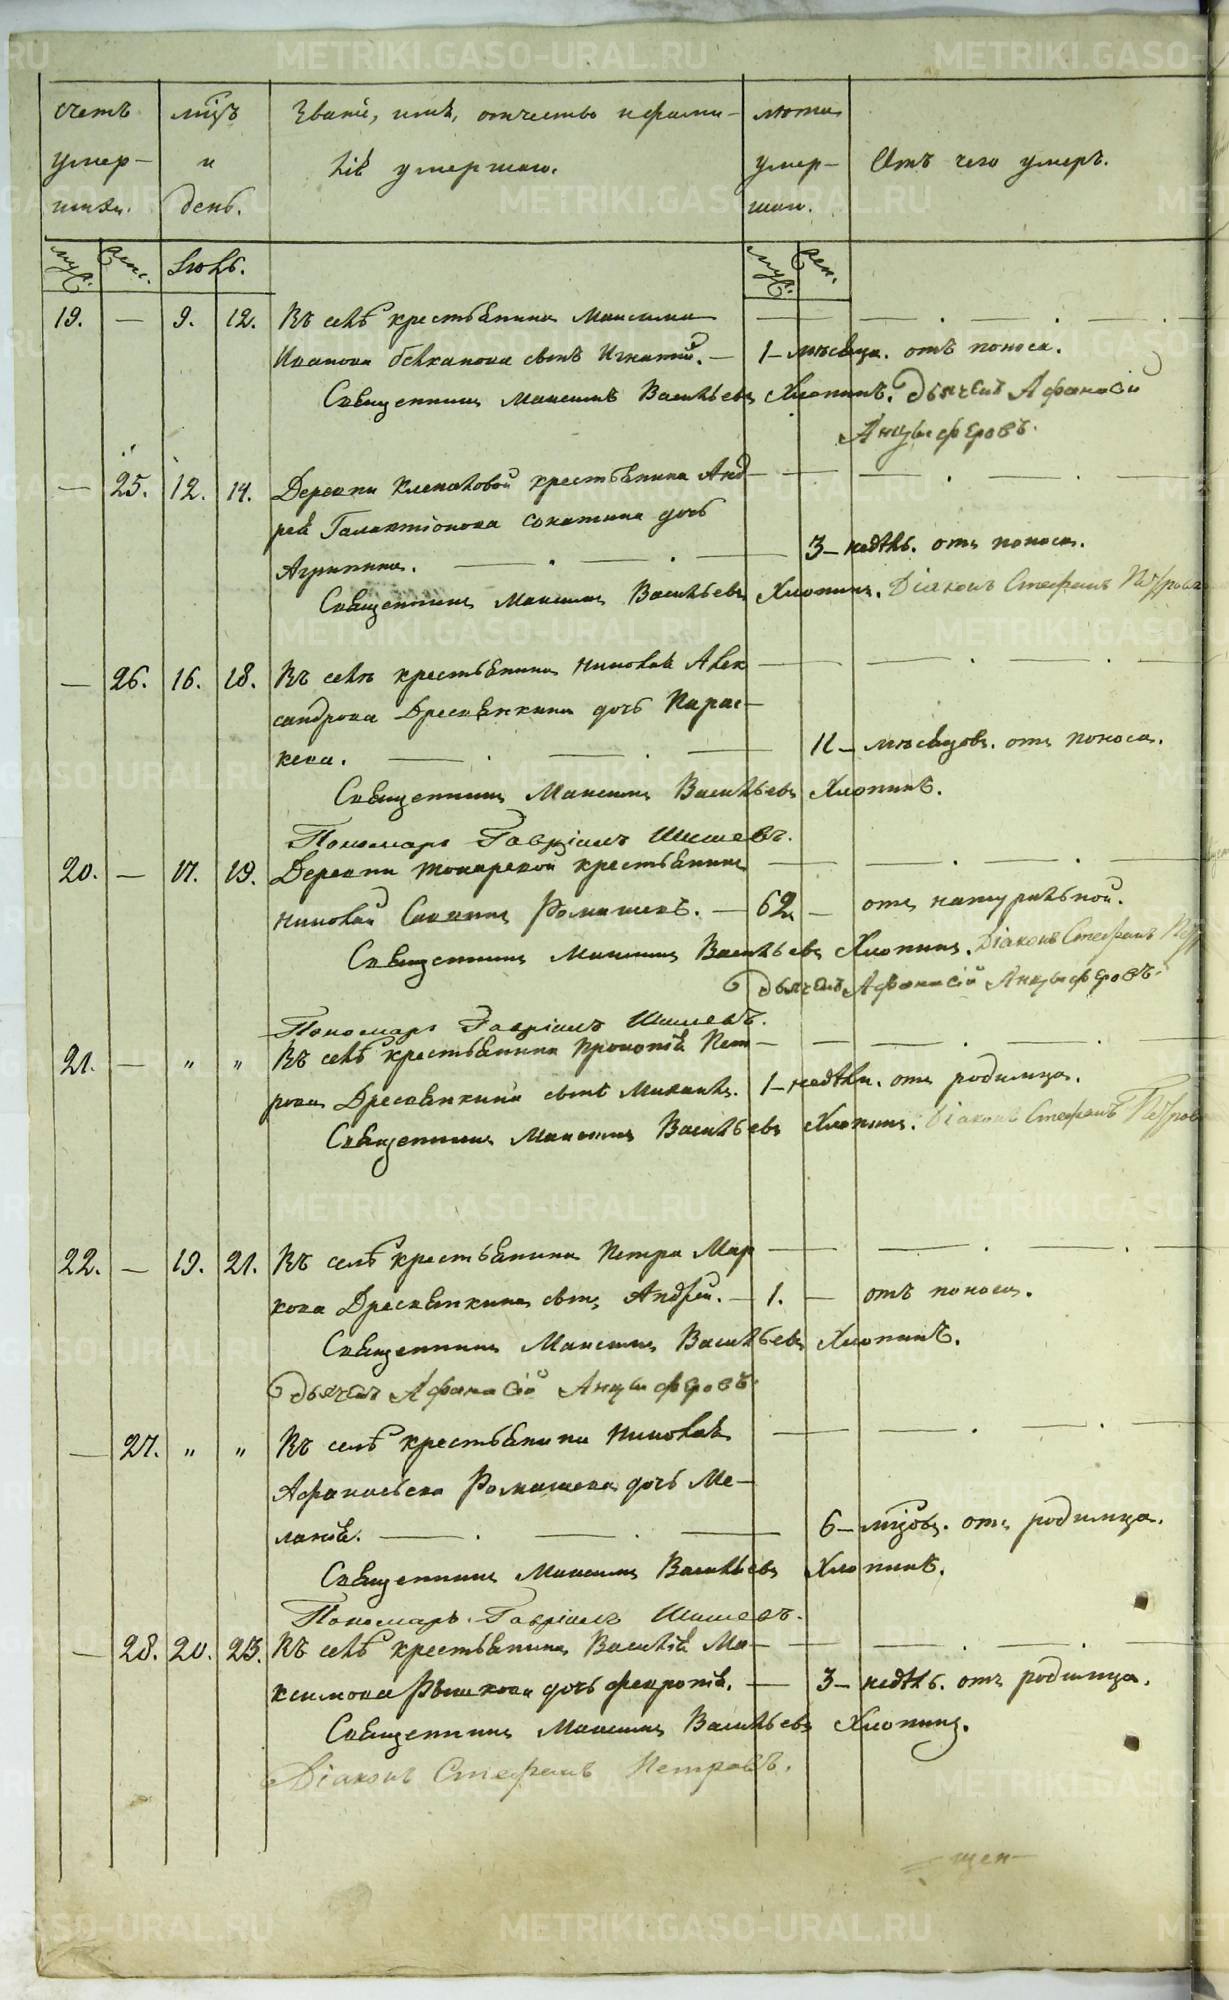 счетъ мцъ Званіе, имя, отчество и фами- лѣта
умер- и лія умершаго. умер- Отъ чего умеръ.
шихъ. день. шаго.
муж. жен. Іюль. муж. жен.
19. — 9. 12. Въ селѣ крестьянина Максима
Иванова сынъ Игнатій. — 1 — мѣсяца. отъ поноса.
Священникъ Максимъ Васильевъ Хлопинъ. Дьячекъ Афанасій
Анцыферовъ.
— 25. 12. 14. Деревни Клепаловой крестьянина Анд-
рея Галактіонова сохатина дочь
Агрипина. — 3 — недѣль. отъ поноса.
Священникъ Максимъ Васильевъ Хлопинъ. Діаконъ Стефанъ Петровъ
— 26. 16. 18. Въ селѣ крестьянина Николая Алек
сандрова Дресвянкина дочь Парас-
кева. — 11 — мѣсяцовъ. отъ поноса.
Священникъ Максимъ Васильевъ Хлопинъ.
Пономарь Гавріилъ Шишевъ.
20. — 17. 19. Деревни токаревой крестьянинъ
Николай Саввинъ Ромашевъ. — 62 — отъ натуральной.
Священникъ Максимъ Васильевъ Хлопинъ. Діаконъ Стефанъ Петр
Дьячекъ Афанасій Анцыферовъ.
Пономарь Гавріилъ Шишевъ.
21. — " " Въ селѣ крестьянина Прокопія Пет-
рова Дресвянкина сынъ Михаилъ. 1 — недѣли. отъ родимца.
Священникъ Максимъ Васильевъ Хлопинъ. Діаконъ Стефанъ Петров
22. — 19. 21. Въ селѣ крестьянина Петра Мар
кова Дресвянкина сынъ Андрей. — 1. — отъ поноса.
Священникъ Максимъ Васильевъ Хлопинъ.
Дьячекъ Афанасій Анцыферовъ.
— 27. " " Въ селѣ крестьянина Николая
Афанасьева Ромашева дочь Ме-
ланія. — 6 — мцовъ. отъ родимца.
Священникъ Максимъ Васильевъ Хлопинъ.
Пономарь Гавріилъ Шишевъ.
— 28. 20. 23. Въ селѣ крестьянина Василія Ма-
ксимова дочь февронія. — 3 — недѣль. отъ родимца.
Священникъ Максимъ Васильевъ Хлопинъ.
Діаконъ Стефанъ Петровъ.
щен-
METRIKI.GASO-URAL.RU